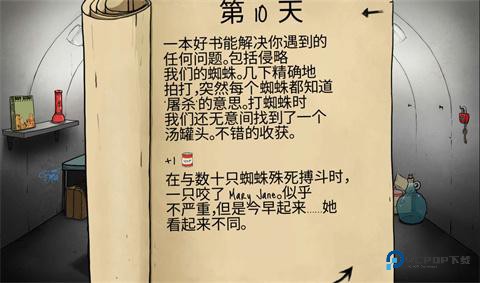 第 10 天
一本好书能解决你遇到的
任何问题。包括侵略
我们的蜘蛛。几下精确地
拍打,突然每个蜘蛛都知道
'屠杀'的意思。打蜘蛛时
我们还无意间找到了一个
汤罐头。不错的收获。
+1
在与数十只蜘蛛殊死搏斗时,
一只咬了 Mary Jane。似乎
不严重,但是今早起来……她
看起来不同。